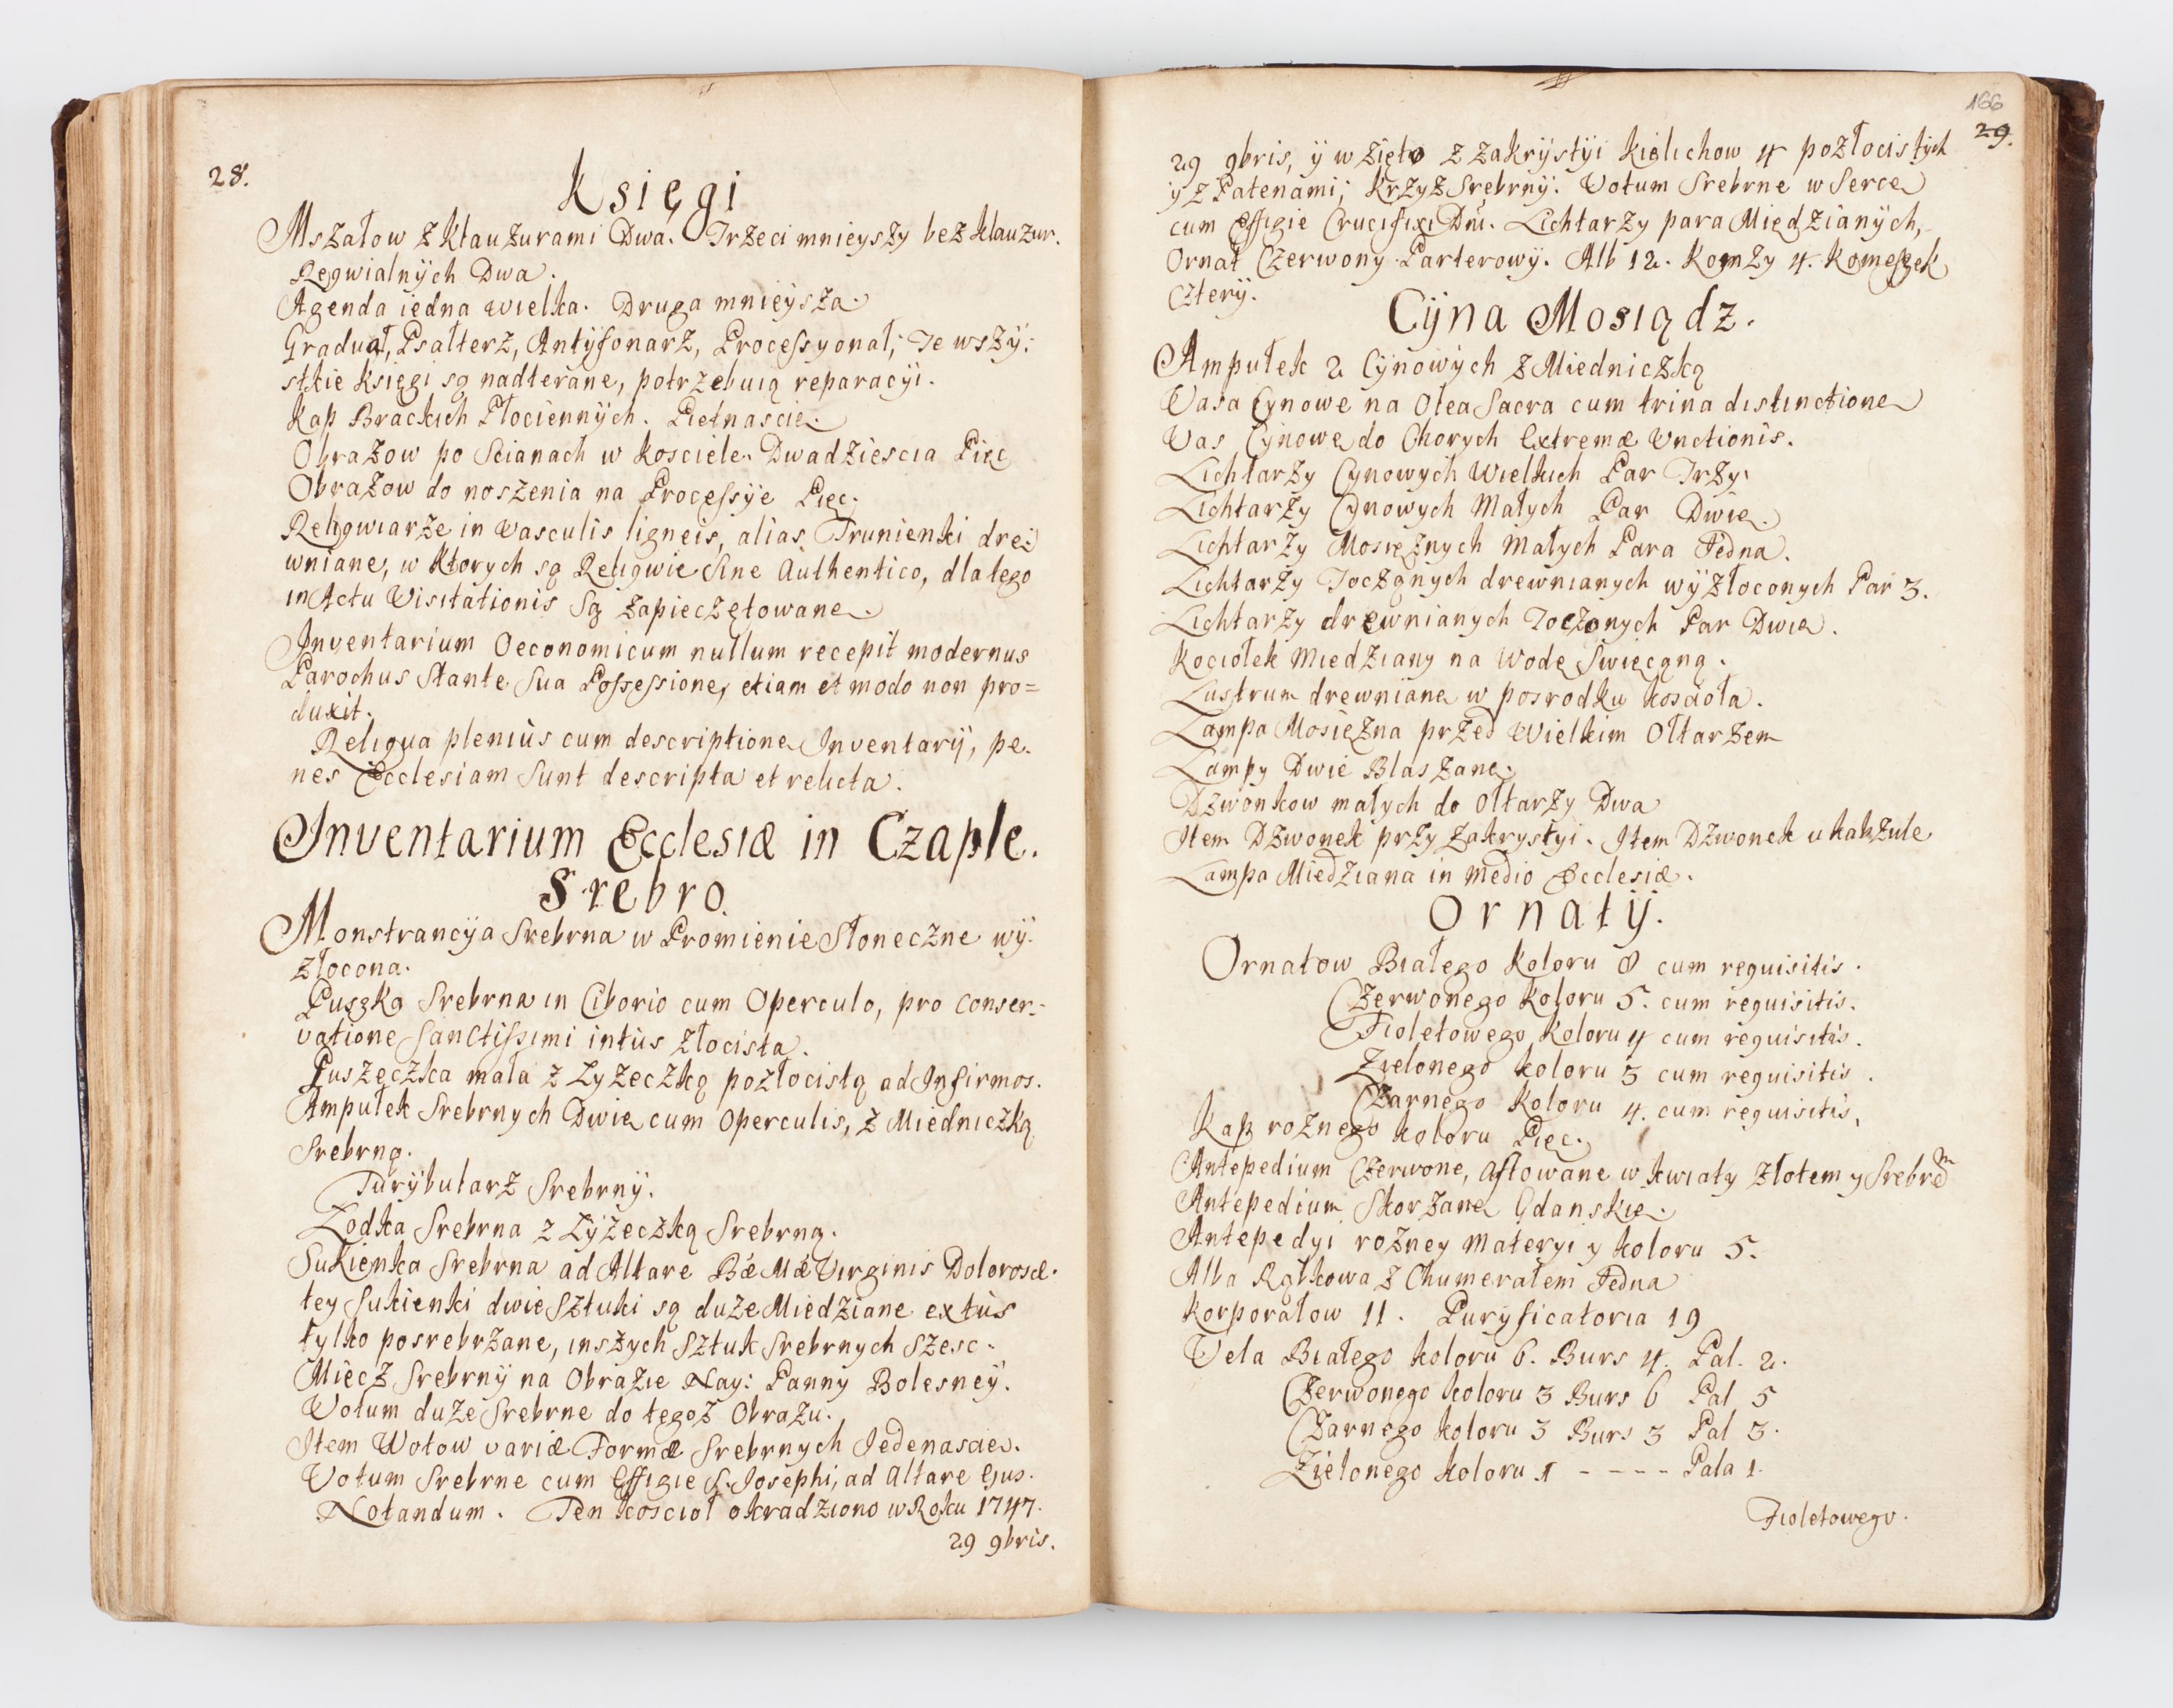 28.
Księgi
Mszałow z Klauzurami Dwa. Trzeci mnieyszy bez klauzur.
Reqwialnÿch Dwa.
Agenda iedna wielka. Druga mnieysza.
Graduał, Psałterz, Antÿfonarz, Processyonał; Te wszÿ:
stkie Księgi są nadterane, potrzebuią reparacÿi.
Kap Brackich Płociennÿch. Piętnascie.
Obrazow po Scianach w Kosciele. Dwadziescia Pięc
Obrazow do noszenia na Processÿe Pięc.
Reliqwiarze in Vasculis ligneis, alias Trunienki dre:
wniane, w Ktorych są Reliqwie Sine Authentico, dlatego
in Actu Visitationis Są zapieczętowane.
Inventarium Oeconomicum nullum recepit modernus
Parochus Stante Sua Possessione, etiam et modo non pro=
duxit.
Reliqua pleniùs cum descriptione Inventarÿ, pe.
nes Ecclesiam Sunt descripta et relicta.
Inventarium Ecclesiæ in Czaple.
Srebro.
Monstrancÿa Srebrna w Promienie Słoneczne wÿ.
złocona.
Puszka Srebrna in Ciborio cum Operculo, pro conser-
vatione Sanctissimi intùs złocista.
Puszeczka mała z Lyzeczką pozłocistą ad Infirmos.
Ampułek Srebrnych Dwie cum Operculis, z Miedniczką
Srebrną.
Turÿbularz Srebrnÿ.
Łodka Srebrna z Lÿzeczką Srebrną.
Sukienka Srebrna ad Altare Bæ Mæ Virginis Dolorosæ.
tey Sukienki dwie Sztuki są duze Miedziane extùs
tylko posrebrzane, inszych Sztuk Srebrnych Szesc.
Miecz Srebrnÿ na Obrazie Nay: Panny Bolesneÿ.
Votum duze Srebrne do tegoz Obrazu.
Item Wotow variæ Formæ Srebrnych Jedenascie.
Votum Srebrne cum Effigie S. Josephi, ad Altare Ejus.
Notandum. Ten koscioł okradziono w Roku 1747.
29 9bris.
166
29.
29 9bris, ÿ wzięto z zakrÿstÿi Kielichow 4 pozłocistych
y z Patenami; Krzyz Srebrnÿ. Votum Srebrne w Serce
cum Effigie Crucifixi Dni. Lichtarzy para Miedzianÿch,
Ornat Czerwony Parterowÿ. Alb 12. Komzy 4. Komeszek
czterÿ.
Cÿna Mosiądz.
Ampułek 2 Cÿnowÿch z Miedniczką
Vasa Cynowe na Olea Sacra cum trina distinctione
Vas Cÿnowe do Chorych Extremæ Unctionis.
Lichtarzy Cynowych Wielkich Par Trzy.
Lichtarzy Cynowych Małych Par Dwie.
Lichtarzy Mosięznych Małych Para Jedna.
Lichtarzy Tocząnych drewnianych wÿzłoconych Par 3.
Lichtarzy drewnianych Toczonych Par Dwie.
Kociołek Miedziany na Wodę Swięcąną.
Lustrum drewniane w posrodku koscioła.
Lampa Mosięzna przed Wielkim Ołtarzem
Lampy Dwie Blaszane.
Dzwonkow małych do Ołtarzy Dwa
Item Dzwonek przy Zakrystyi. Item Dzwonek u kakzule
Lampa Miedziana in Medio Ecclesiæ.
Ornatÿ.
Ornatow Białego Koloru 8 cum requisitis.
Czerwonego Koloru 5. cum requisitis.
Fioletowego Koloru 4 cum requisitis.
Zielonego Koloru 3 cum requisitis.
Czarnego Koloru 4. cum requisitis,
Kap roznego koloru Pięc.
Antepedium Czerwone, aftowane w kwiaty złotem y Srebrem
Antepedium Skorzane Gdanskie.
Antepedyi rozney Materyi y koloru 5.
Alba Rąbkowa z Chumerałem Jedna
Korporałow 11. Puryficatoria 19
Vela Białego koloru 6. Burs 4. Pal. 2.
Czerwonego koloru 3 Burs 6 Pal 5
Czarnego koloru 3 Burs 3 Pal 3.
Zielonego koloru 1 - - - - - Pala 1.
Fioletowego.